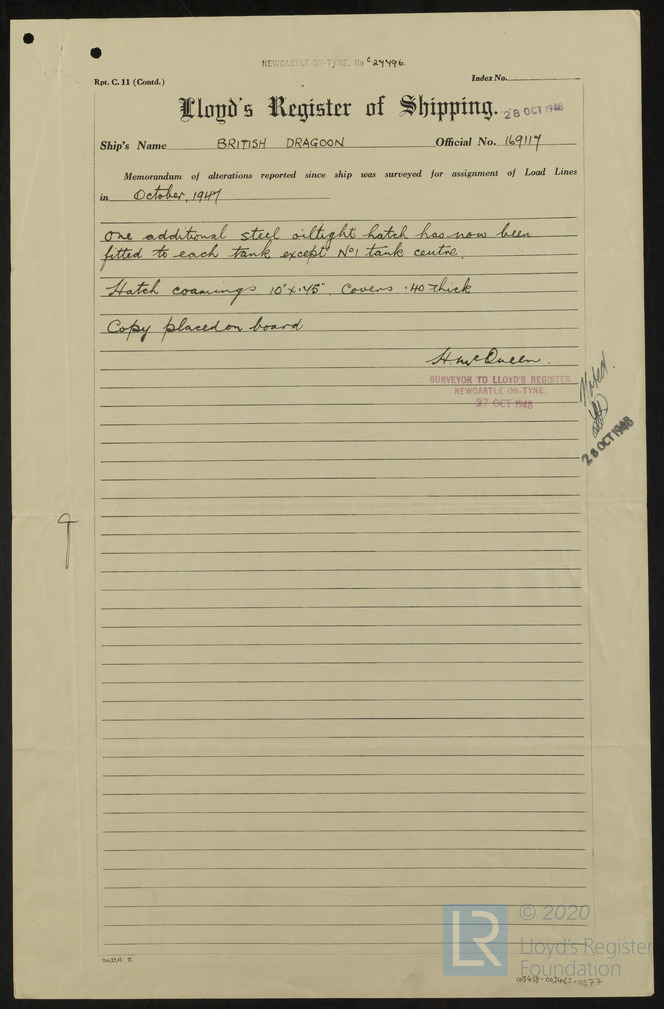 NEWCASTLE-ON-TYNE. No C 24496.
Rpt. C. 11 (Contd.) Index No.
Lloyd's Register of Shipping. 28 OCT 1948
Ship's Name BRITISH DRAGOON Official No. 169117
Memorandum of alterations reported since ship was surveyed for assignment of Load Lines
in October, 1947
One additional steel oiltight hatch has now been
fitted to each tank except No 1 tank centre.
Hatch coamings 10" x .45". Covers .40 thick
Copy placed on board
H. McQueen.
SURVEYOR TO LLOYD'S REGISTER
NEWCASTLE-ON-TYNE.
27 OCT 1948
Noted.
28 OCT 1948
LR © 2020
Lloyd's Register
Foundation
003458-003465-0277